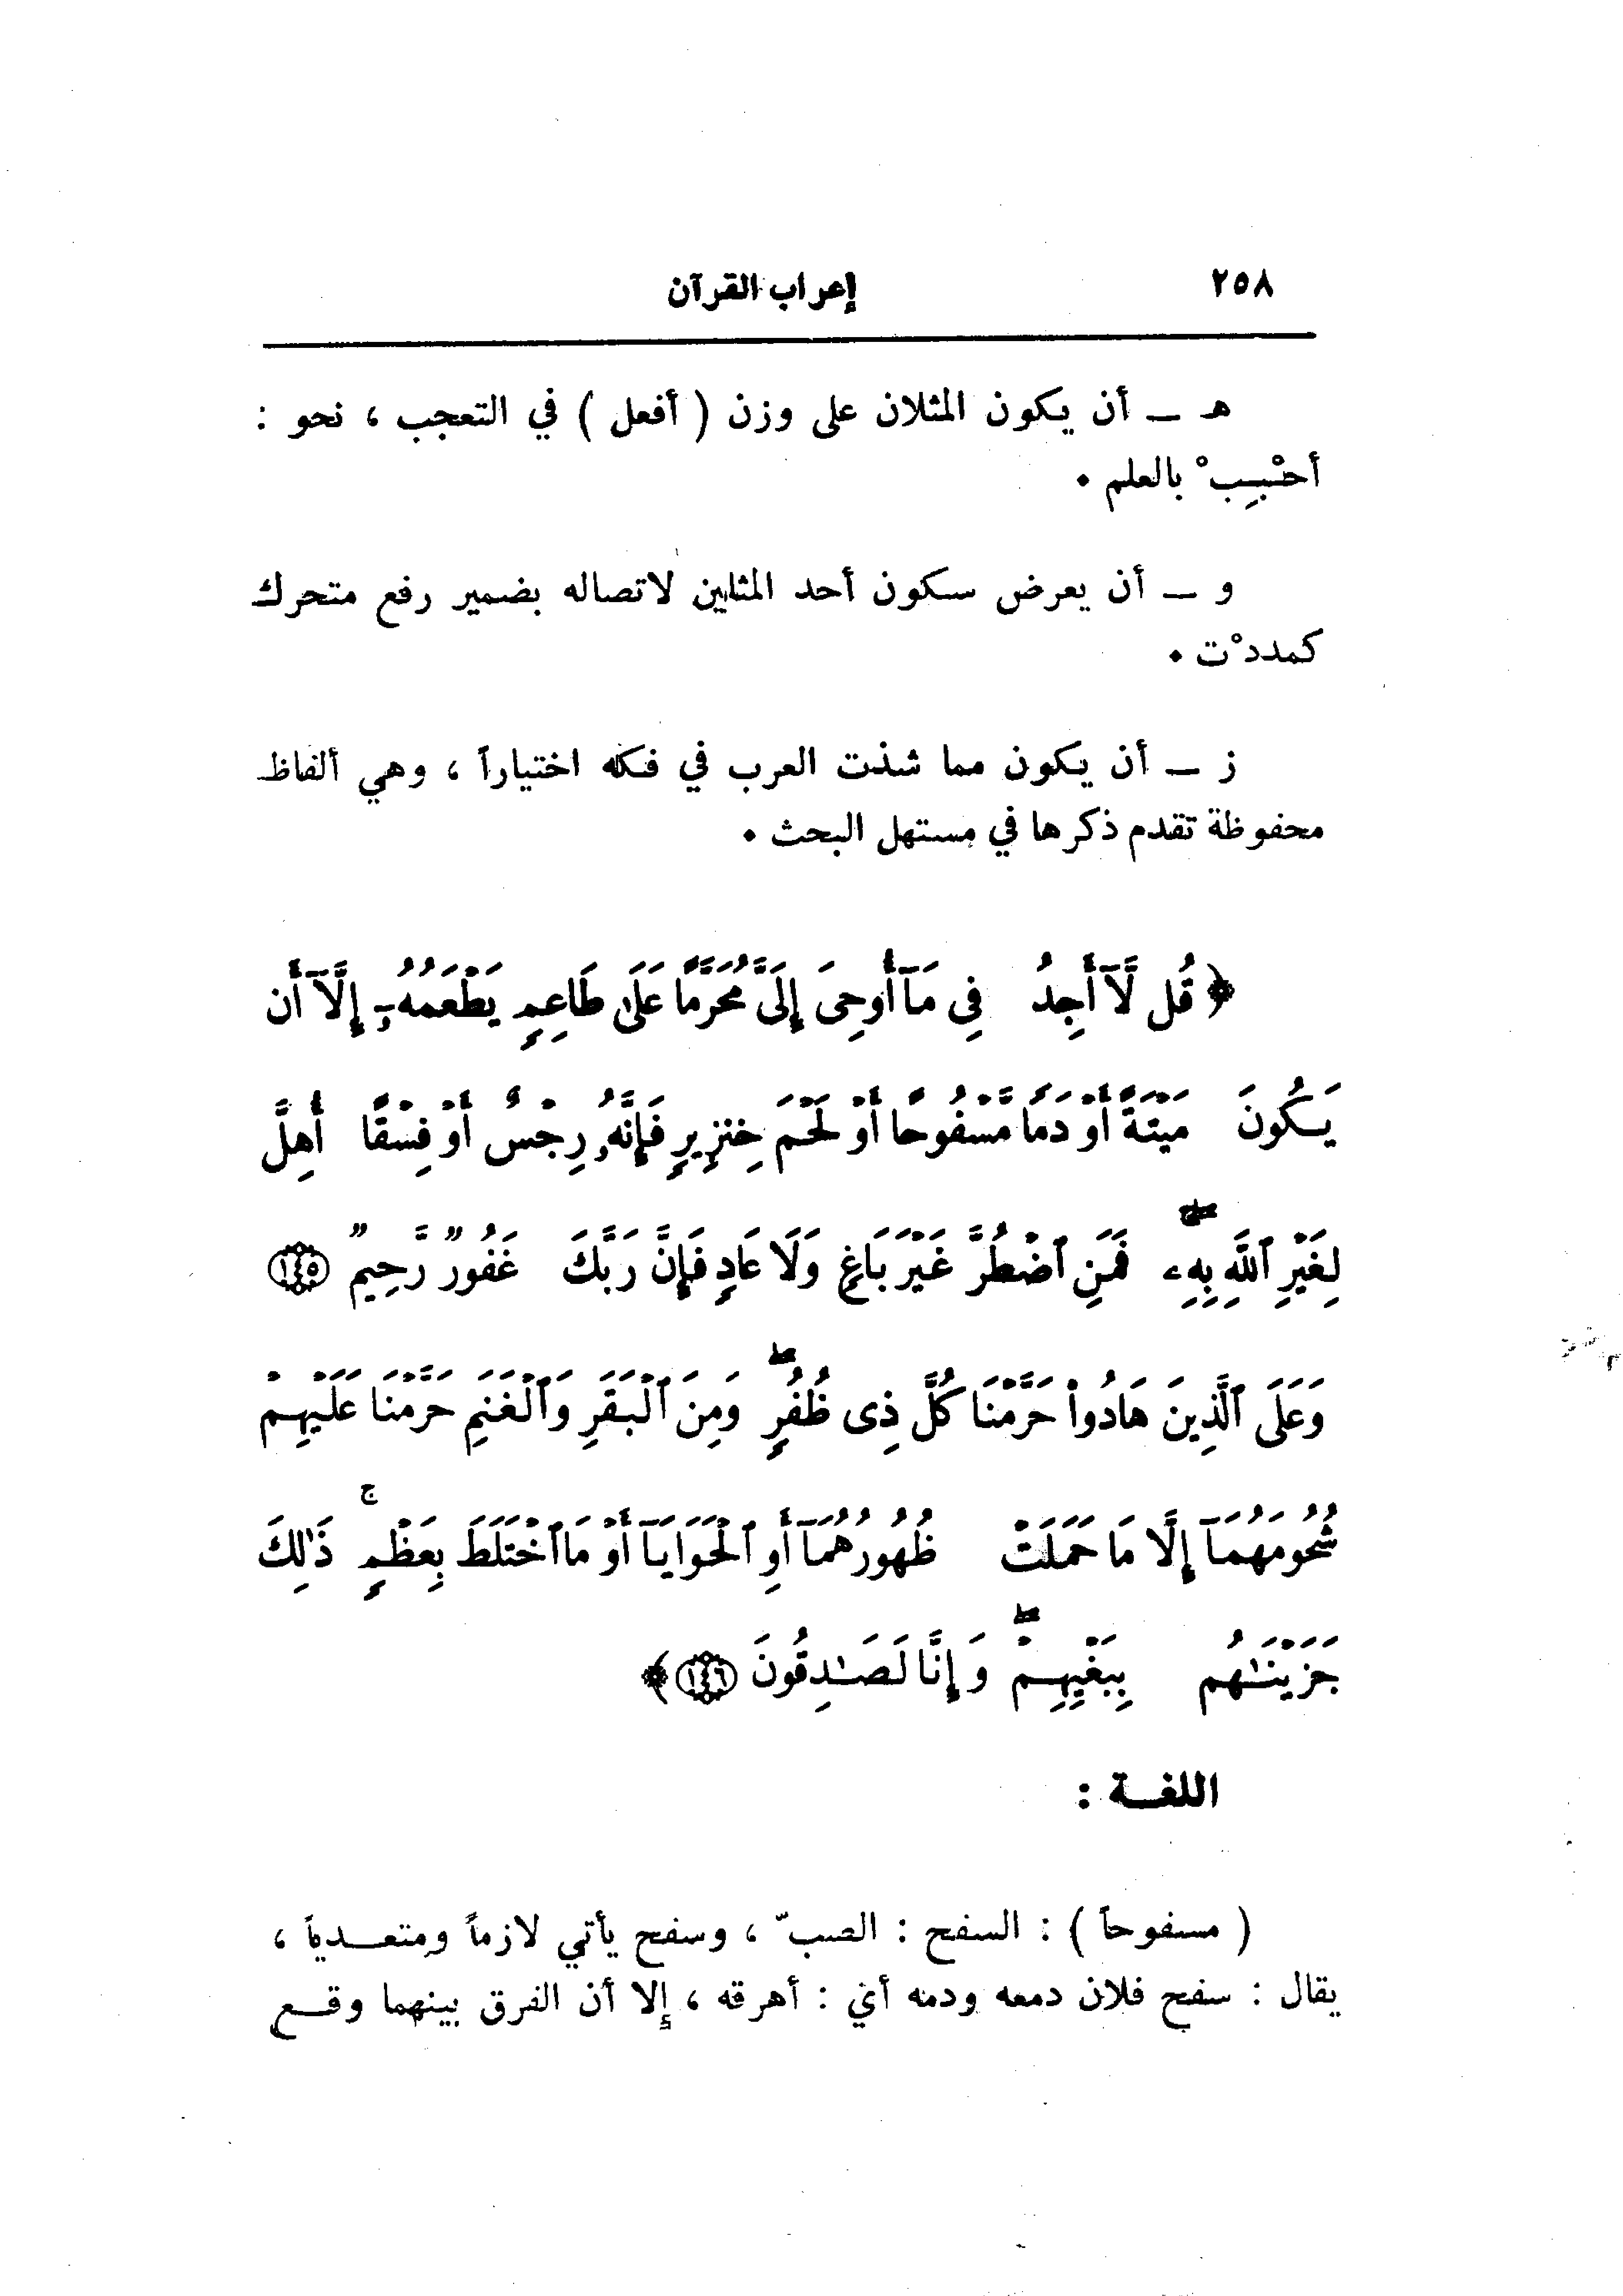 ٢٥٨
إعراب القرآن
هـ ــ أن يكون المثلان على وزن ( أفعل ) في التعجب ، نحو :
أحْببِبْ بالعلم .
و ــ أن يعرض سكون أحد المثلين لاتصاله بضمير رفع متحرك
كمددْت .
ز ــ أن يكون مما شذت العرب في فكه اختياراً ، وهي ألفاظ
محفوظة تقدم ذكرها في مستهل البحث .
﴿ قُل لَّآ أَجِدُ فِى مَآ أُوحِىَ إِلَىَّ مُحَرَّمًا عَلَىٰ طَاعِمٍ يَطْعَمُهُۥٓ إِلَّآ أَن
يَكُونَ مَيْتَةً أَوْ دَمًا مَّسْفُوحًا أَوْ لَحْمَ خِنزِيرٍ فَإِنَّهُۥ رِجْسٌ أَوْ فِسْقًا أُهِلَّ
لِغَيْرِ ٱللَّهِ بِهِۦۚ فَمَنِ ٱضْطُرَّ غَيْرَ بَاغٍ وَلَا عَادٍ فَإِنَّ رَبَّكَ غَفُورٌ رَّحِيمٌ ١٤٥
وَعَلَى ٱلَّذِينَ هَادُوا۟ حَرَّمْنَا كُلَّ ذِى ظُفُرٍۖ وَمِنَ ٱلْبَقَرِ وَٱلْغَنَمِ حَرَّمْنَا عَلَيْهِمْ
شُحُومَهُمَآ إِلَّا مَا حَمَلَتْ ظُهُورُهُمَآ أَوِ ٱلْحَوَايَآ أَوْ مَا ٱخْتَلَطَ بِعَظْمٍۚ ذَٰلِكَ
جَزَيْنَٰهُم بِبَغْيِهِمْۖ وَإِنَّا لَصَٰدِقُونَ ١٤٦ ﴾
اللغــة :
( مسفوحاً ) : السفح : الصبّ ، وسفح يأتي لازماً ومتعــدياً ،
يقال : سفح فلان دمعه ودمه أي : أهرقه ، إلا أن الفرق بينهما وقــع